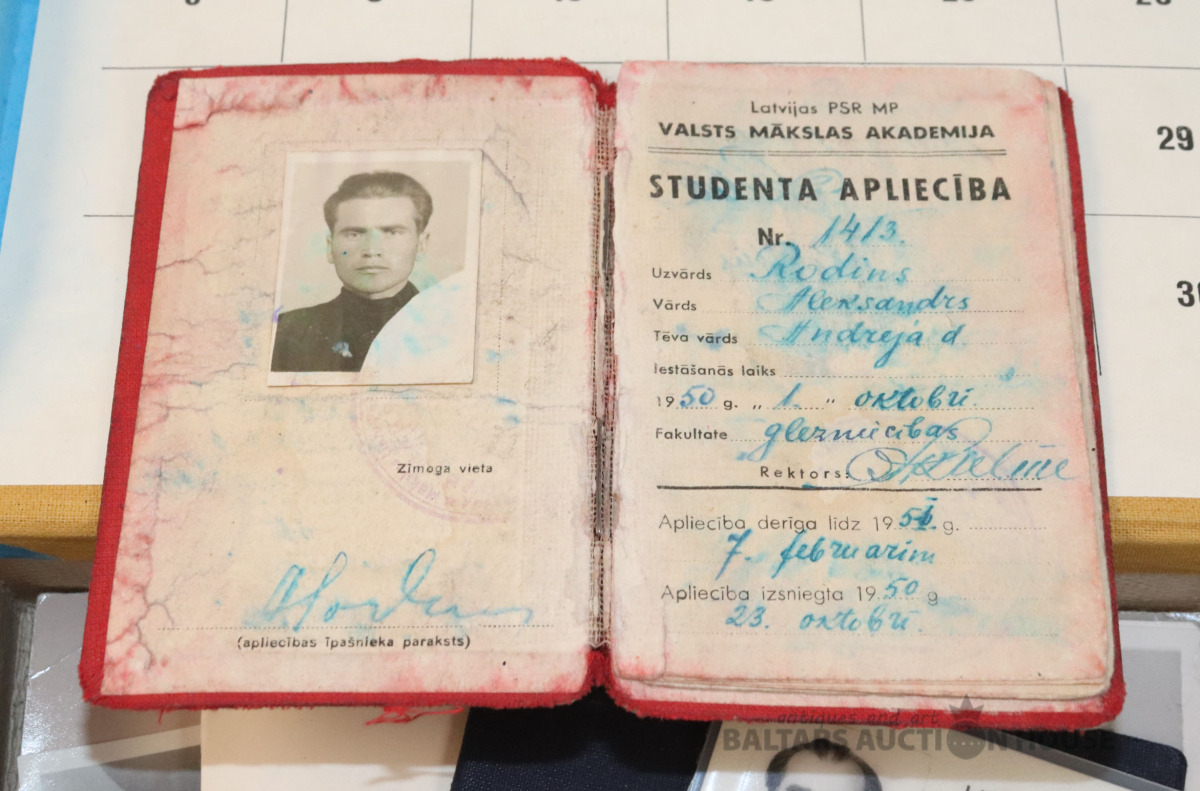 29
30
Zīmoga vieta
(apliecības īpašnieka paraksts)
Latvijas PSR MP
VALSTS MĀKSLAS AKADEMIJA
STUDENTA APLIECĪBA
Nr. 1413.
Uzvārds Rodins
Vārds Aleksandrs
Tēva vārds Andreja d.
Iestāšanās laiks
1950 g. „ 1. " oktobrī.
Fakultate glezniecības
Rektors:
Apliecība derīga līdz 195 g.
7. februarim
Apliecība izsniegta 1950 g
23. oktobrī.
antiques and art
BALTARS AUCTION HOUSE